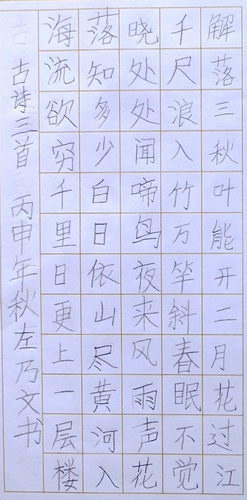 解落三秋叶能开二月花过江
千尺浪入竹万竿斜春眠不觉
晓处处闻啼鸟夜来风雨声花
落知多少白日依山尽黄河入
海流欲穷千里日更上一层楼
古诗三首 丙申年秋左乃文书